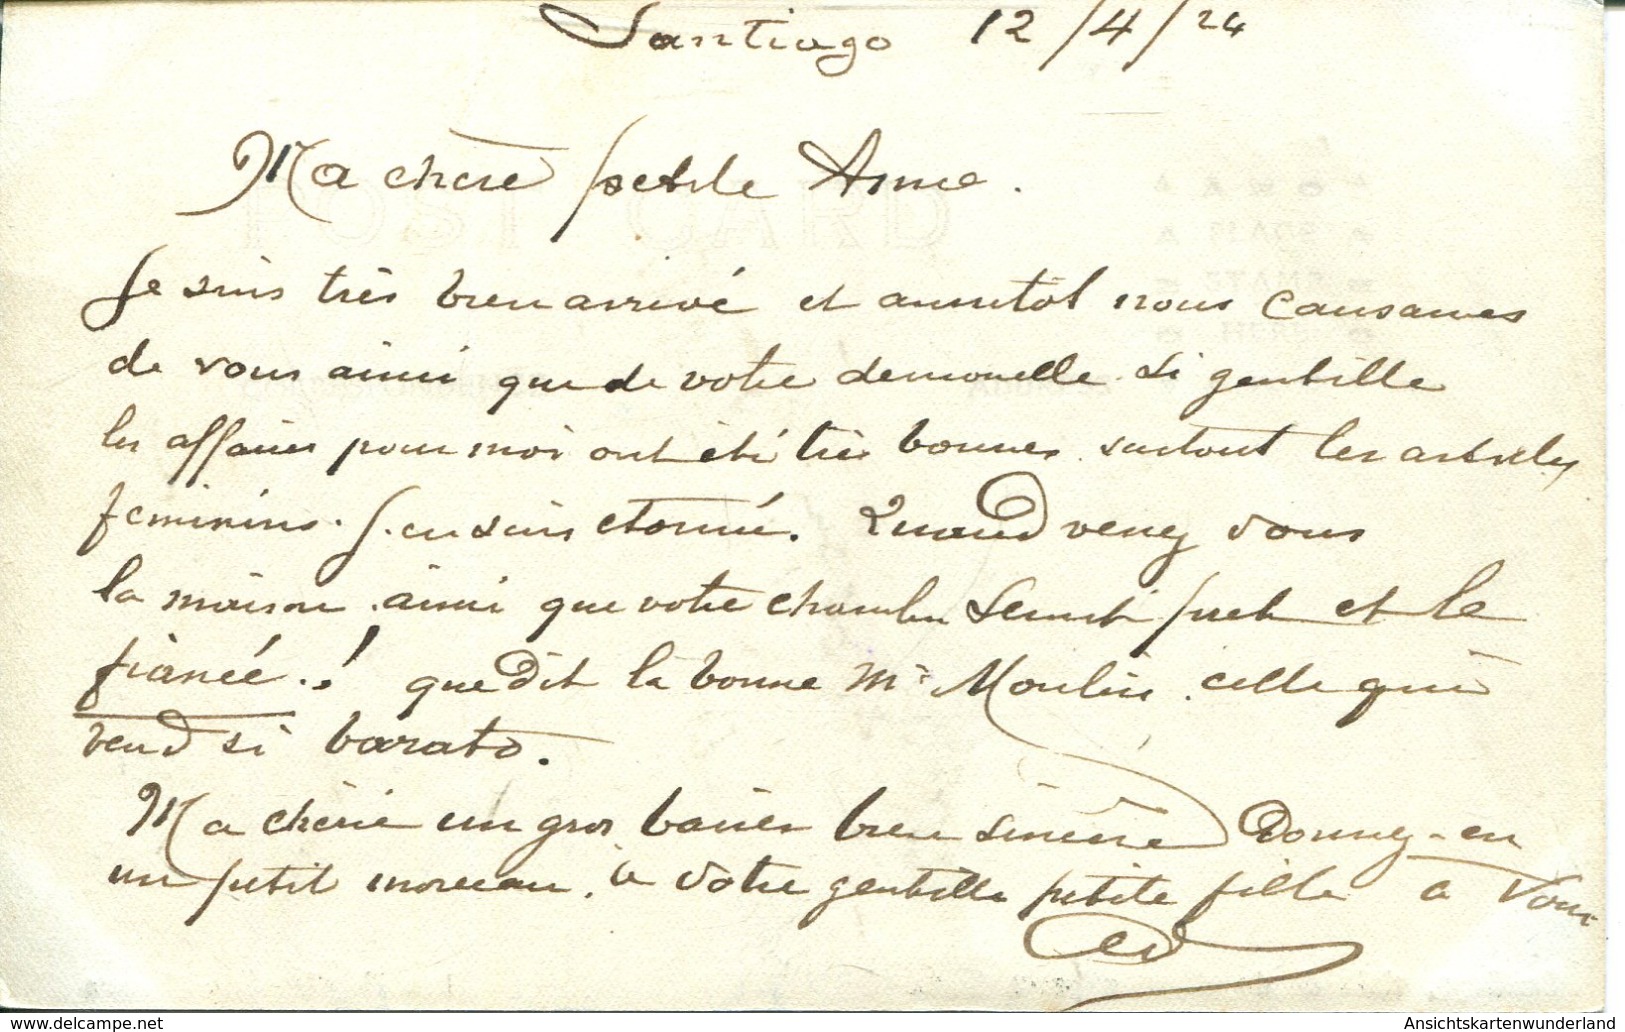 Santiago 12/4/24
Ma chère petite Anna.
Je suis très bien arrivé et aussitôt nous causames
de vous ainsi que de votre demoiselle si gentille
les affaires pour moi ont été très bonnes surtout les articles
feminins. J'en suis etonné. Quand venez vous
la maison ainsi que votre chambre sont pret et le
fiancée..! que dit la bonne Mr Moulin. celle qui
vend si barato.
Ma chèrie un gros baiser bien sincère Donnez-en
un petit morceau à votre gentille petite fille a vous
delcampe.net
Ansichtskartenwunderland